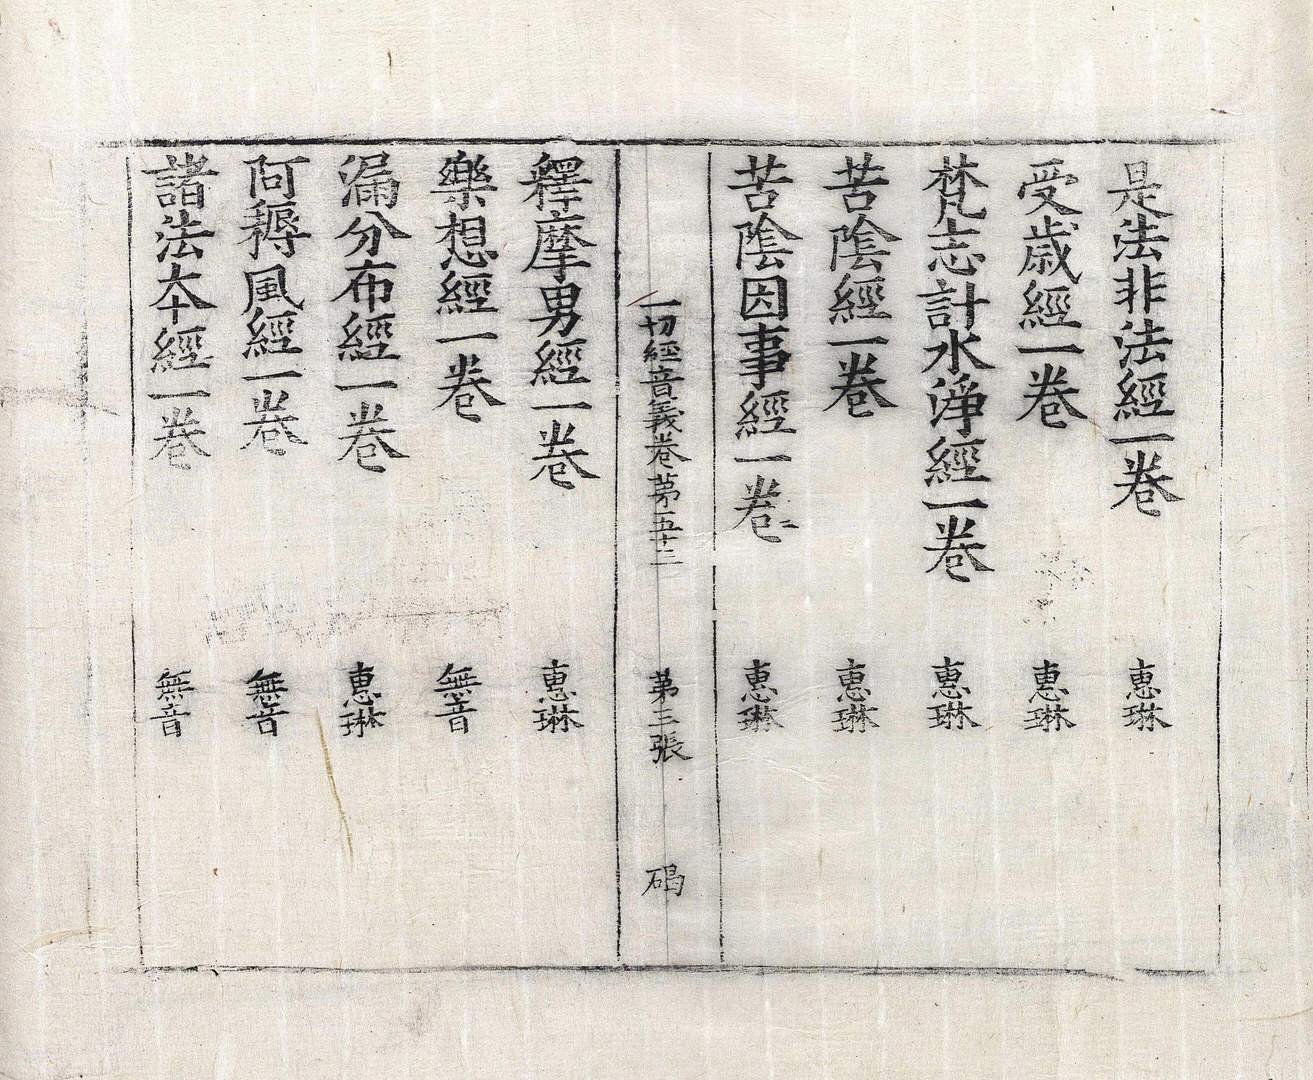 是法非法經一卷 惠琳
受歲經一卷 惠琳
梵志計水淨經一卷 惠琳
苦陰經一卷 惠琳
苦陰因事經一卷 惠琳
一切經音義卷第五十二 第三張 碣
釋摩男經一卷 惠琳
樂想經一卷 無音
漏分布經一卷 惠琳
阿耨風經一卷 無音
諸法本經一卷 無音